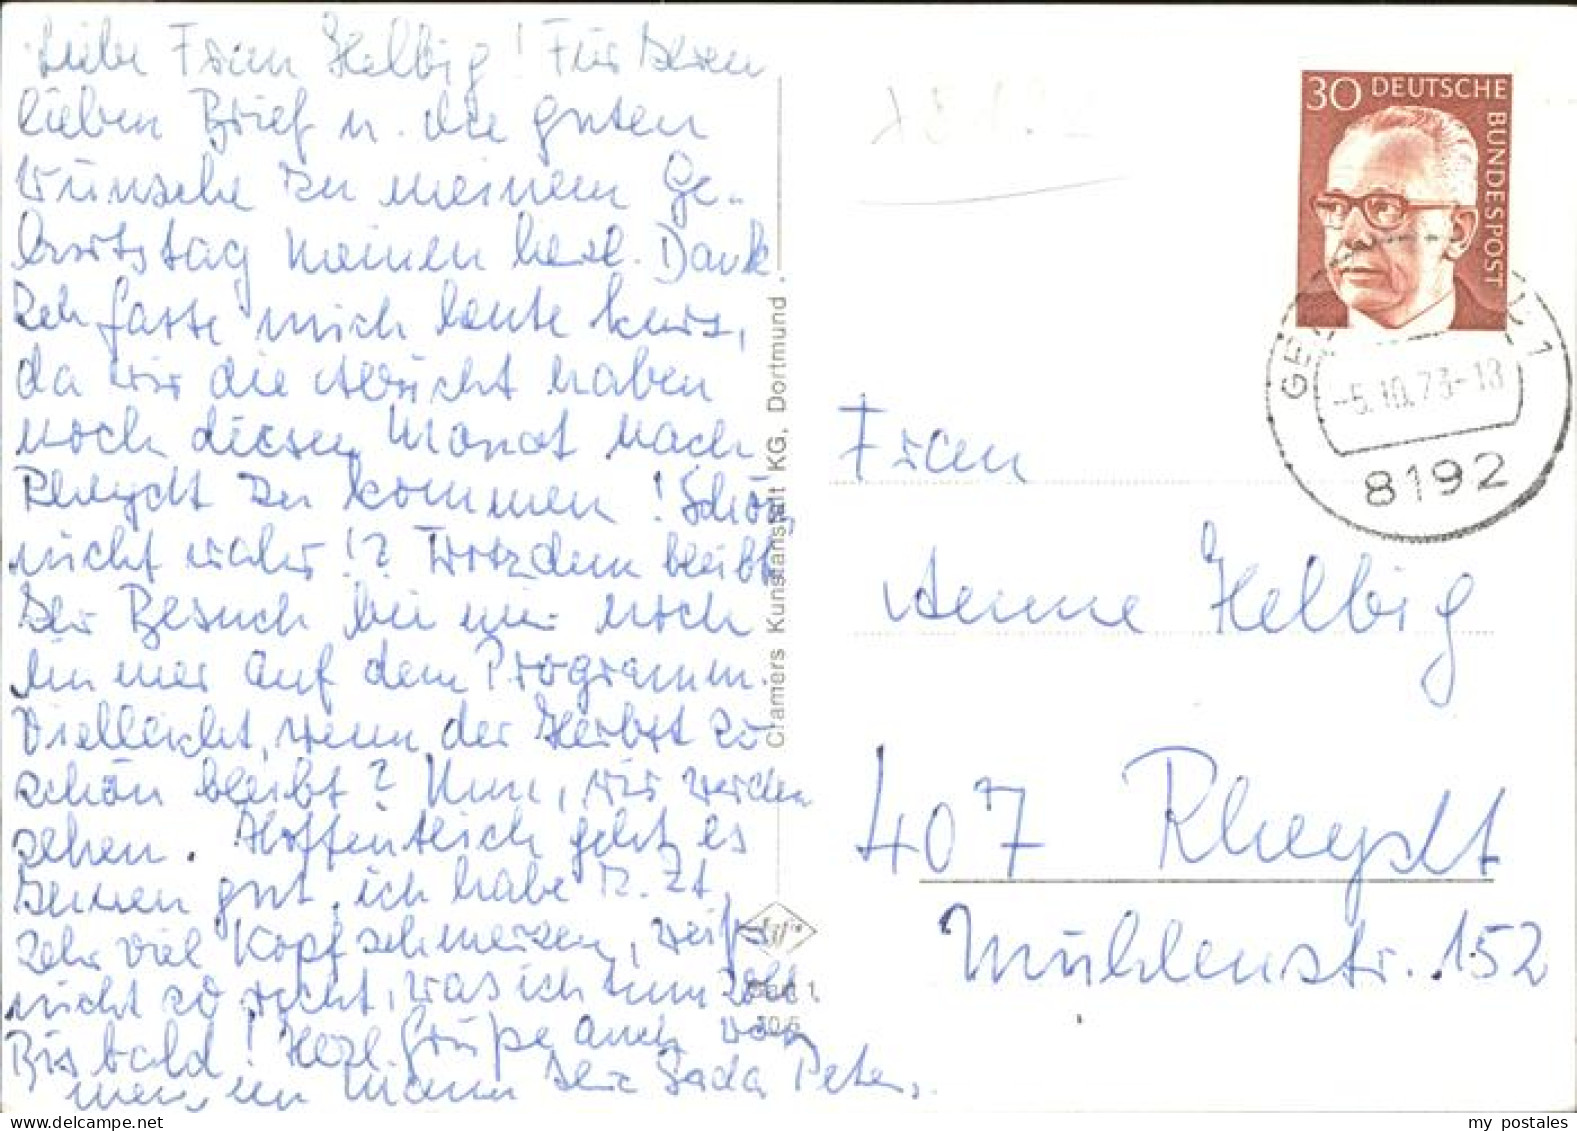 Liebe Frau Helbig! Für Ihren
lieben Brief u. die guten
Wünsche zu meinem Ge-
burtstag meinen herzl. Dank.
Ich fasse mich heute kurz,
da wir die Absicht haben
noch diesen Monat nach
Rheydt zu kommen! Schön
nicht wahr!? Trotzdem bleibt
Ihr Besuch bei mir noch
immer auf dem Programm.
Vielleicht, wenn der Herbst so
schön bleibt? Nun, wir werden
sehen. Hoffentlich geht es
Ihnen gut, ich habe z. Zt.
sehr viel Kopfschmerzen, weiß
nicht so recht, was ich tun soll.
Bis bald! Herzl. Grüße auch von
meinem Mann Ihre Peters.
Cramers Kunstanstalt KG, Dortmund
30 DEUTSCHE
BUNDESPOST
-5.10.73-18
8192
Frau
Anne Helbig
407 Rheydt
Mühlenstr. 152
my postales